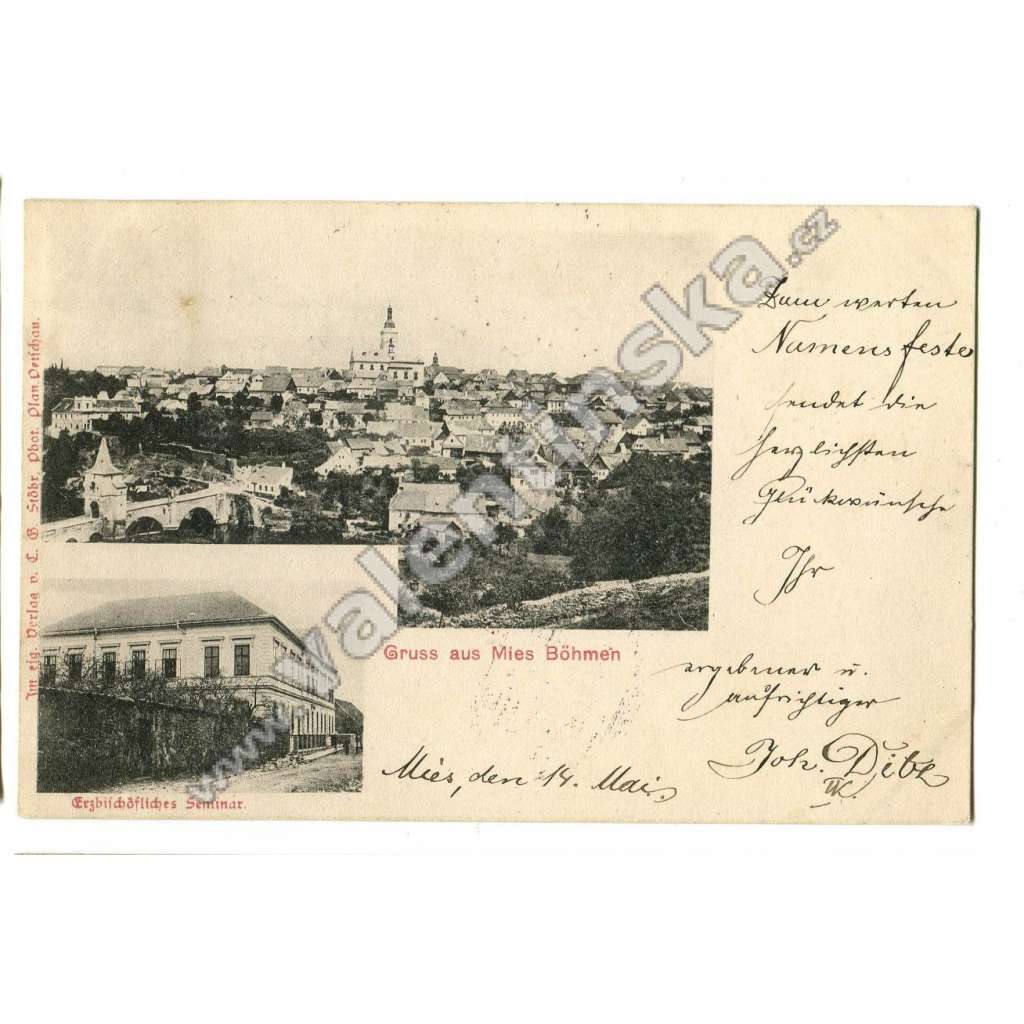 Zum werten
Namensfeste
sendet die
herzlichsten
Glückwünsche
Ihr
ergebener u.
aufrichtiger
Joh.
Mies, den 14. Mai
Gruss aus Mies Böhmen
Erzbischöfliches Seminar.
Im eig. Verlag v. C. G Stöhr Phot. Plan. Petschau.
www.valentinska.cz